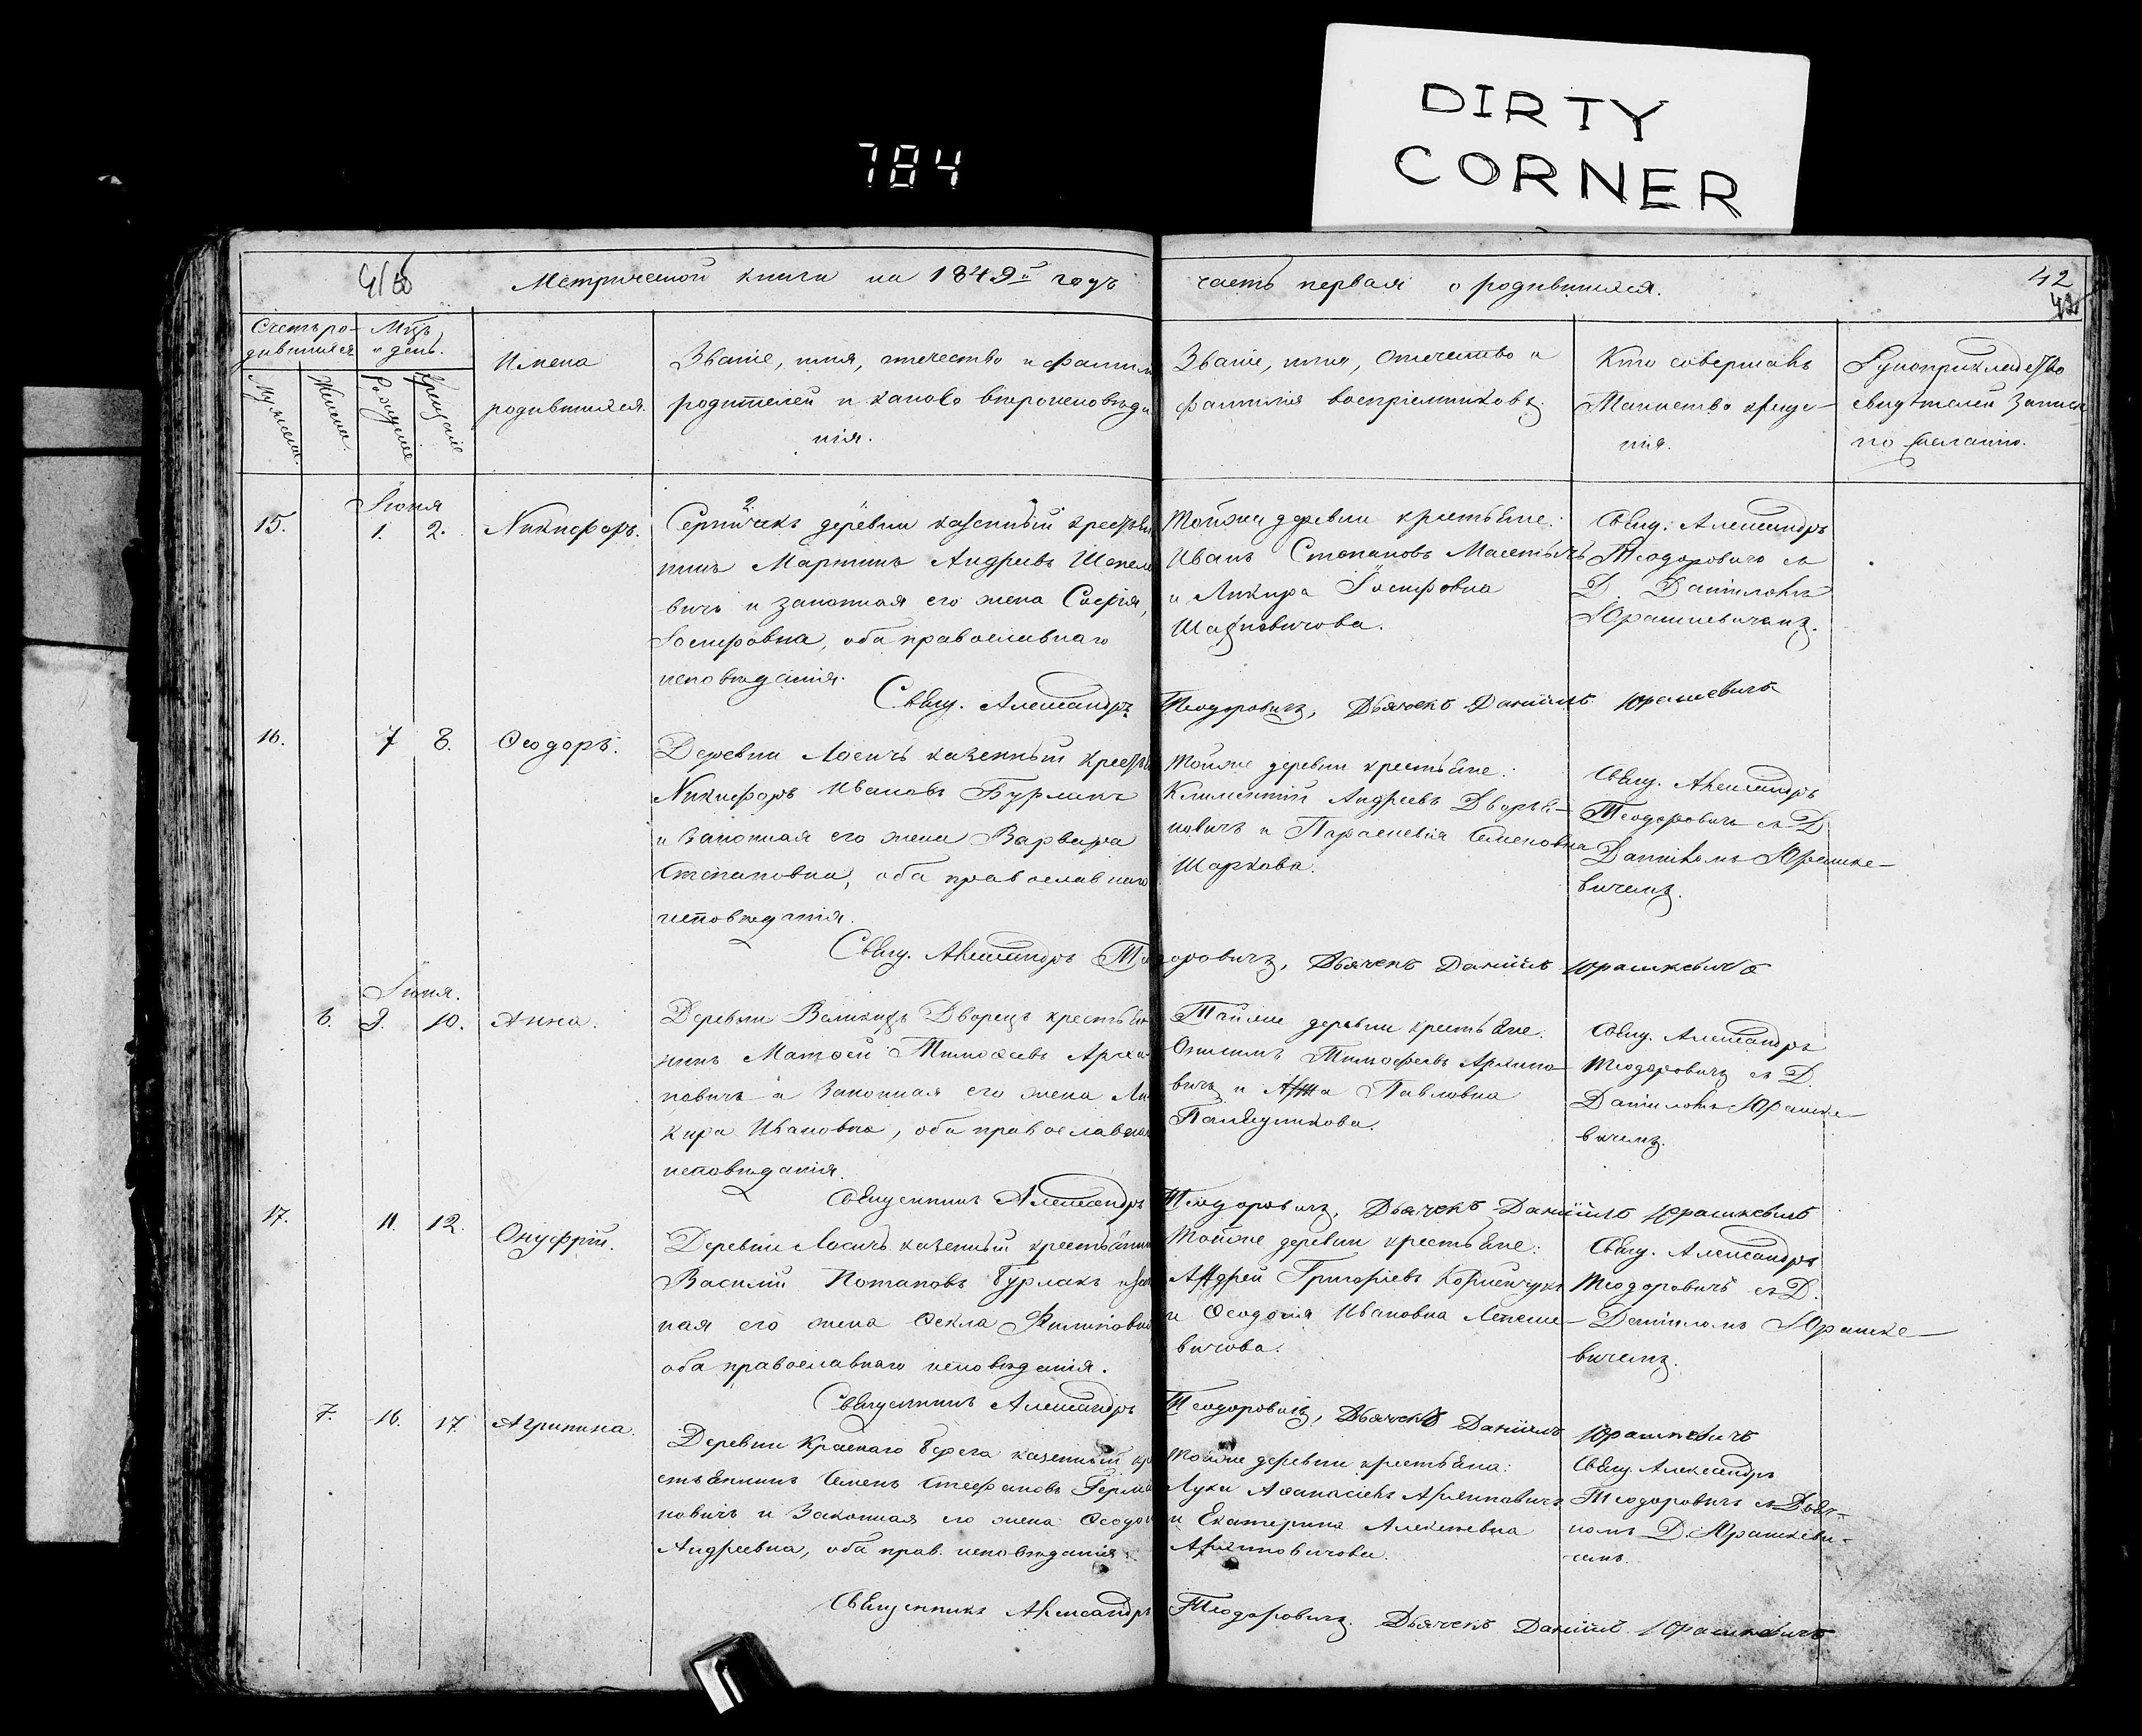 DIRTY
CORNER
784
Метрической книги на 1849й годъ
часть первая о родившихся.
42
Счетъ ро-
дившихся
Мцъ
и день.
Имена
родившихся.
Званіе, имя, отечество и
родителей и какого
нія.
Званіе, имя, отечество и
фамилія воспріемниковъ.
Кто совершалъ
Таинство креще-
нія.
Рукоприкладство
свидѣтелей записи
по желанію.
Мужеска.
Женска.
Рожденіе
Крещеніе
15.
Іюня
1. 2.
Никифоръ.
деревни казенный
Мартинъ Андреевъ
вичъ и законная его жена Софія,
Іосифовна, оба православнаго
исповѣданія.
Тойже деревни крестьяне:
Иванъ Степановъ
и Іосифовна
Свящ. Александръ
Теодоровичъ съ
Д. Даніиломъ
Юрашкевичемъ.
Свящ. Александръ Теодоровичъ, Дьячекъ Даніилъ Юрашкевичъ
16.
7 8.
Ѳеодоръ.
Деревни Лосичъ казенный
Никифоръ Ивановъ Бурлакъ
и законная его жена Варвара
Степановна, оба православнаго
исповѣданія.
Тойже деревни крестьяне:
Климентій Андреевъ
и Параскевія Семеновна
Шаркова.
Свящ. Александръ
Теодоровичъ съ Д.
Даніиломъ Юрашке-
вичемъ.
Свящ. Александръ Теодоровичъ, Дьячекъ Даніилъ Юрашкевичъ
Іюня.
6. 9. 10.
Анна.
Деревни Дворецъ
Матѳей Тимоѳеевъ
новичъ и законная его жена
Кира Ивановна, оба православнаго
исповѣданія.
Тойже деревни крестьяне:
Онисимъ Тимофеевъ
вичъ и Павловна
Свящ. Александръ
Теодоровичъ съ Д.
Даніиломъ Юрашке-
вичемъ.
Священникъ Александръ Теодоровичъ, Дьячекъ Даніилъ Юрашкевичъ
17.
11. 12.
Онуфрій.
Деревни Лосичъ казенный крестьянинъ
Василій Потаповъ Бурлакъ
ная его жена Ѳекла
оба православнаго исповѣданія.
Тойже деревни крестьяне:
Андрей Григоріевъ
и Ѳеодосія Ивановна
вичова.
Свящ. Александръ
Теодоровичъ съ Д.
Даніиломъ Юрашке-
вичемъ.
Священникъ Александръ Теодоровичъ, Дьячекъ Даніилъ Юрашкевичъ
7. 16. 17.
Агрипина.
Деревни Краснаго Берега казенный кре
стьянинъ Семенъ Стефановъ
новичъ и законная его жена
Андреевна, оба прав. исповѣданія.
Тойже деревни крестьяна:
Лука Аѳанасіевъ
и Екатерина Алексѣевна
Свящ. Александръ
Теодоровичъ съ Дьяч-
комъ Д. Юрашкеви-
чемъ.
Священникъ Александръ Теодоровичъ. Дьячекъ Даніилъ Юрашкевичъ